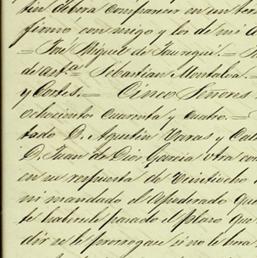 tió debera comparecer en un ter
firmó conmigo y los de mi a
= José Miguel de Juangui. =
de asta Sebastian Montalva.
y Cortes. = Cinco Señores
ochocientos cuarenta y cuatro. =
tado D. Agustin Varas y Cal
D. Juan de Dios Garcia otra con
en su respuesta de Veintiocho
ni mandado el Apoderado que
te habiendo pasado el plazo que
dir se le prorrogue si no le bas